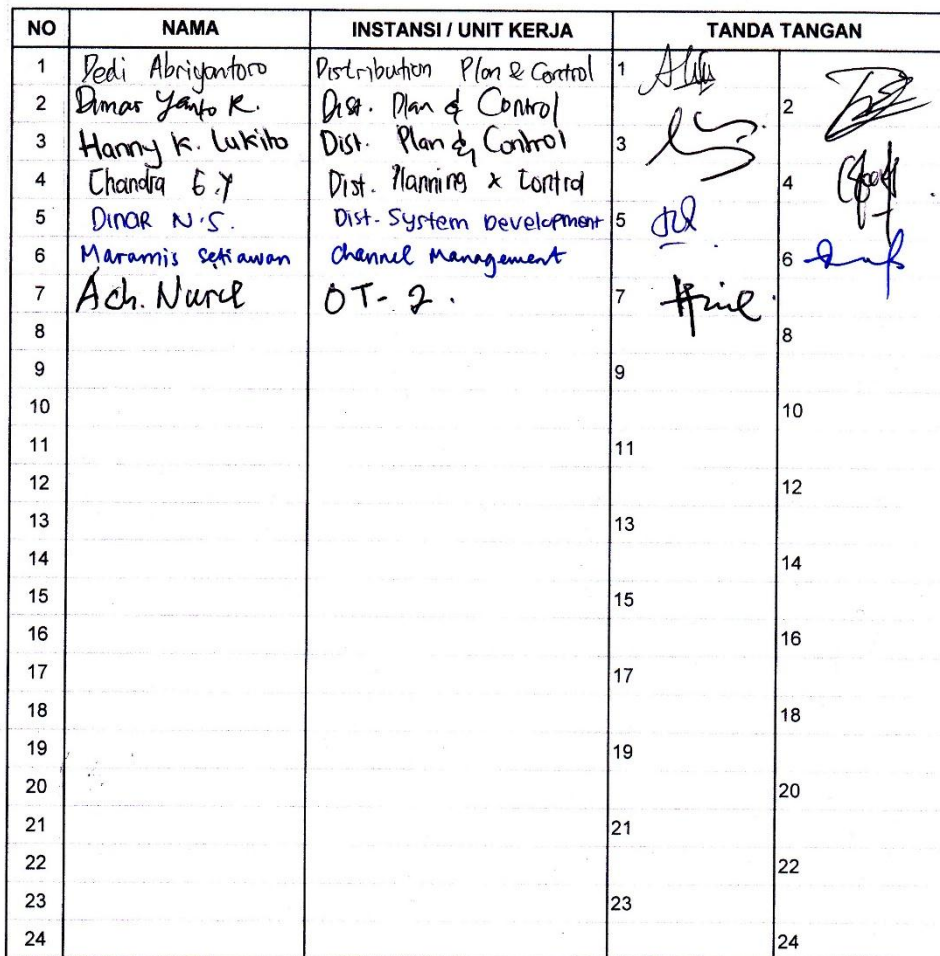 NO NAMA INSTANSI / UNIT KERJA TANDA TANGAN
1 Dedi Abriyantoro Distribution Plan & Control 1
2 Dimas Yanto R. Dist. Plan & Control 2
3 Hanny K. Lukito Dist. Plan & Control 3
4 Chandra E.Y Dist. Planning & Control 4
5 DINAR N.S. Dist. System Development 5
6 Maramis Setiawan Channel Management 6
7 Ach. Nurul OT-2. 7
8 8
9 9
10 10
11 11
12 12
13 13
14 14
15 15
16 16
17 17
18 18
19 19
20 20
21 21
22 22
23 23
24 24